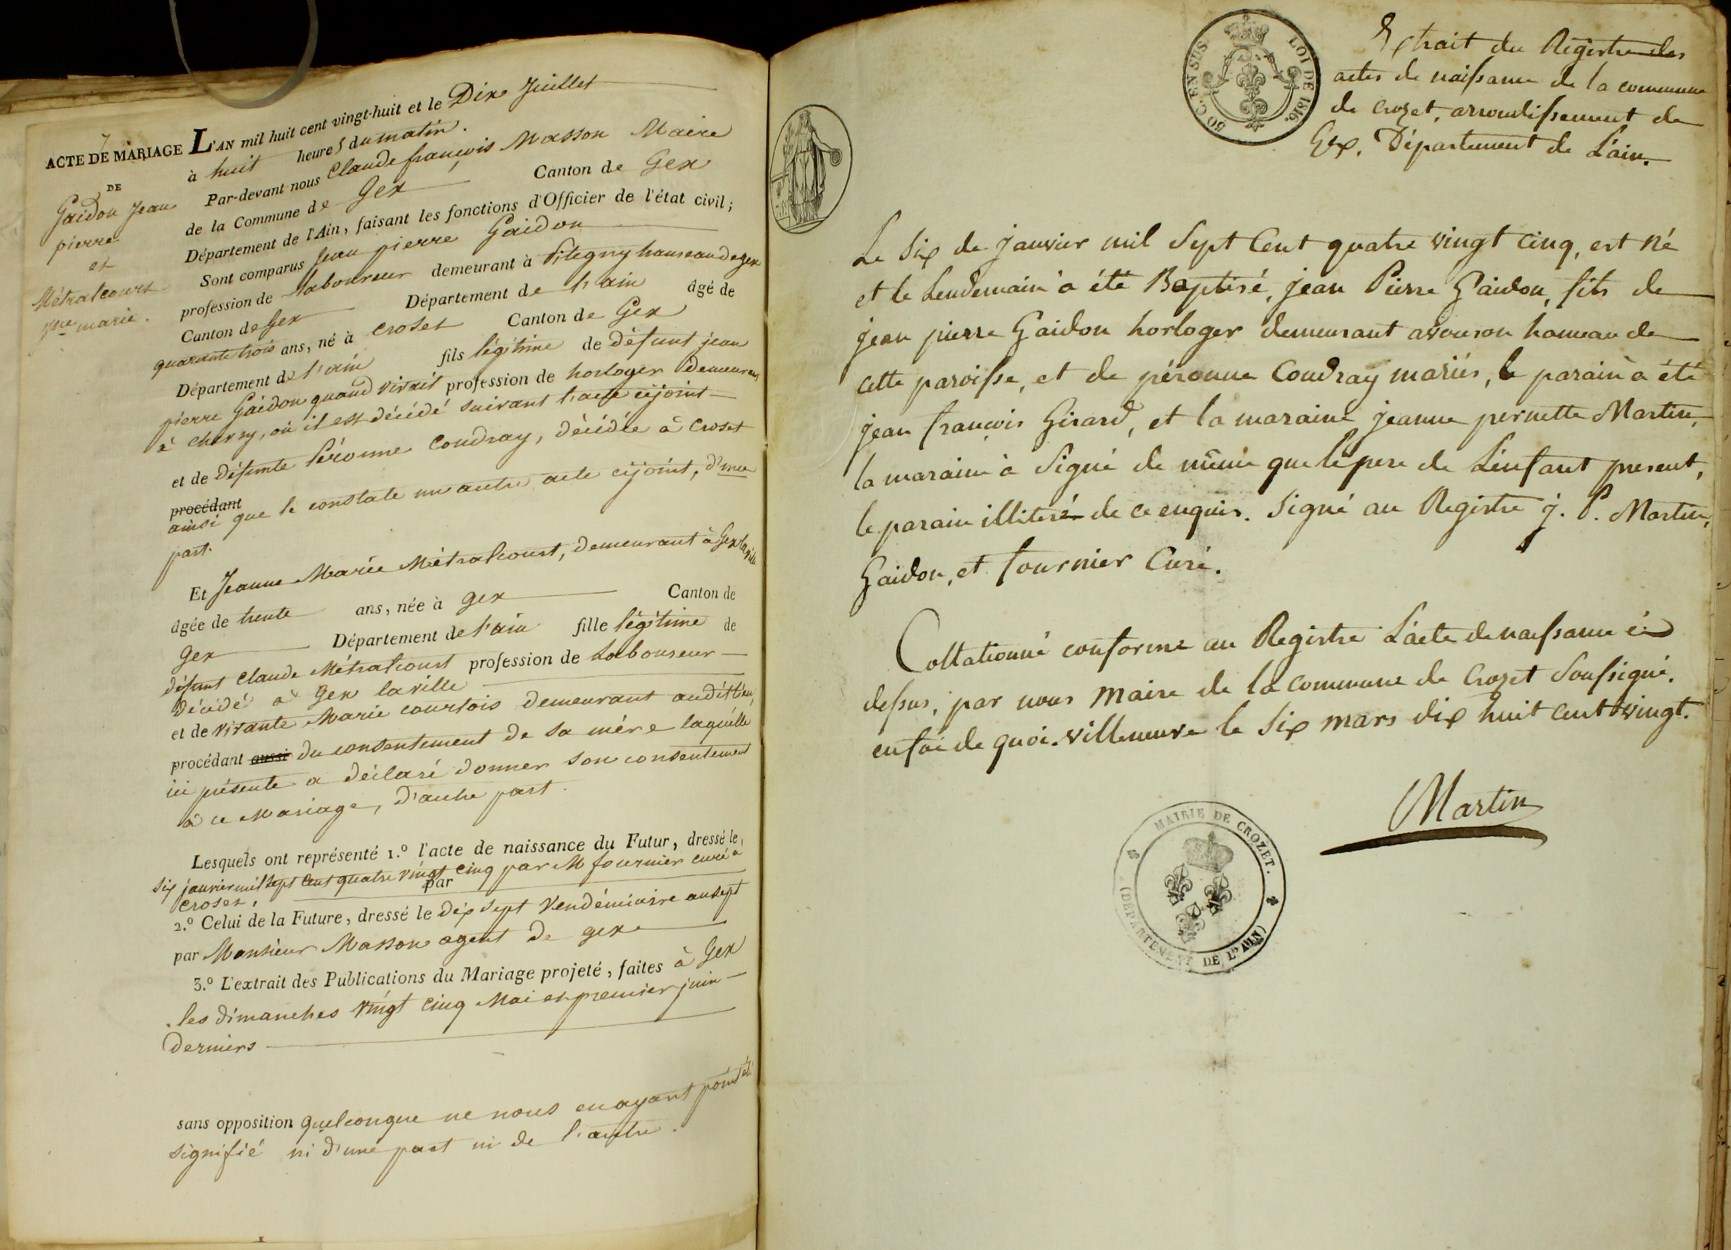 ACTE DE MARIAGE
DE
Gaidon Jean
pierre
et
Métralcourt
jne marie.
L'AN mil huit cent vingt-huit et le Dix Juillet
à huit heures du matin.
Par-devant nous Claude françois Masson Maire
de la Commune de Gex Canton de Gex
Département de l'Ain, faisant les fonctions d'Officier de l'état civil;
Sont comparus Jean pierre Gaidon
profession de laboureur demeurant à Pitegny hameau de gex
Canton de Gex Département de l'ain âgé de
quarante trois ans, né à croset Canton de Gex
Département de l'ain fils légitime de défunt jean
pierre Gaidon quand vivait profession de horloger demeurant
à chevry, où il est décédé suivant l'acte cijoint
et de défunte Péronne Coudray, décédée à Croset
procédant
ainsi que le constate un autre acte cijoint, d'une
part.
Et Jeanne Marie Métralcourt, demeurant à Gex la ville
âgée de trente ans, née à gex Canton de
gex Département de l'ain fille légitime de
défunt Claude Métralcourt profession de Laboureur
décédé à Gex la ville
et de vivante Marie courtois demeurant audit lieu,
procédant aussi du consentement de sa mère laquelle
ici présente a déclaré donner son consentement
à ce Mariage, d'autre part.
Lesquels ont représenté 1.° l'acte de naissance du Futur, dressé le
six janvier mil sept cent quatre vingt cinq par M fournier curé à
croset. par
2.° Celui de la Future, dressé le dix sept Vendémiaire an sept
par Monsieur Masson agent de gex
3.° L'extrait des Publications du Mariage projeté, faites à Gex
les dimanches vingt cinq Mai et premier juin
derniers
sans opposition quelconque ne nous en ayant point été
signifié ni d'une part ni de l'autre.
50 C. EN SUS
LOI DE 1816
Extrait du Registre des
actes de naissance de la commune
de Crozet, arrondissement de
Gex, Département de L'ain.
Le Six de janvier mil Sept Cent quatre vingt cinq, est né
et le Lendemain à été Baptisé, jean Pierre Gaidon, fils de
jean pierre Gaidon horloger demeurant avouson hameau de
cette paroisse, et de péronne Coudray mariés, le parain à été
jean françois Girard, et la maraine jeanne pernette Martin,
la maraine à Signé de même que le pere de L'enfant present,
le parain illiteré de ce enquis. Signé au Registre j. P. Martin,
Gaidon, et fournier Curé.
Collationné conforme au Registre L'acte de naissance ci
dessus, par nous Maire de la commune de Crozet Soussigné.
en foi de quoi. Villeneuve le Six mars dix huit cent vingt.
Martin
MAIRIE DE CROZET.
(DEPARTEMENT DE L'AIN)